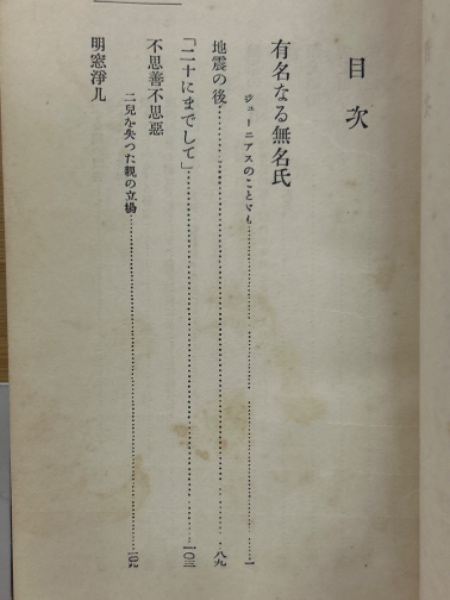 目次
有名なる無名氏
ジューニアスのことゞも……一
地震の後……八九
「二十にまでして」……一〇三
不思善不思惡
二兒を失つた親の立場……一〇九
明窓淨几